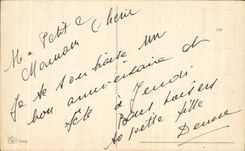 Ma Petite
Maman Chérie
Je te souhaite un
bon anniversaire et
fête à Jeudi
bons baisers
ta petite fille
Denise